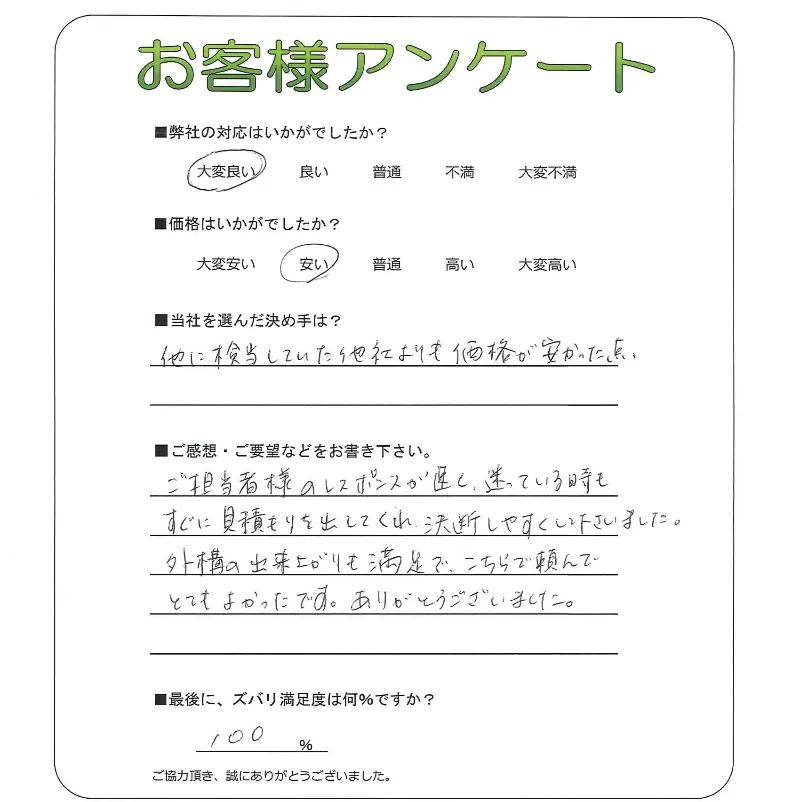 お客様アンケート
■弊社の対応はいかがでしたか？
大変良い 良い 普通 不満 大変不満
■価格はいかがでしたか？
大変安い 安い 普通 高い 大変高い
■当社を選んだ決め手は？
他に検当していた他社よりも価格が安かった点、
■ご感想・ご要望などをお書き下さい。
ご担当者様のレスポンスが速く、迷っている時も
すぐに見積もりを出してくれ、決断しやすくして下さいました。
外構の出来上がりも満足で、こちらで頼んで
とてもよかったです。ありがとうございました。
■最後に、ズバリ満足度は何%ですか？
100 %
ご協力頂き、誠にありがとうございました。